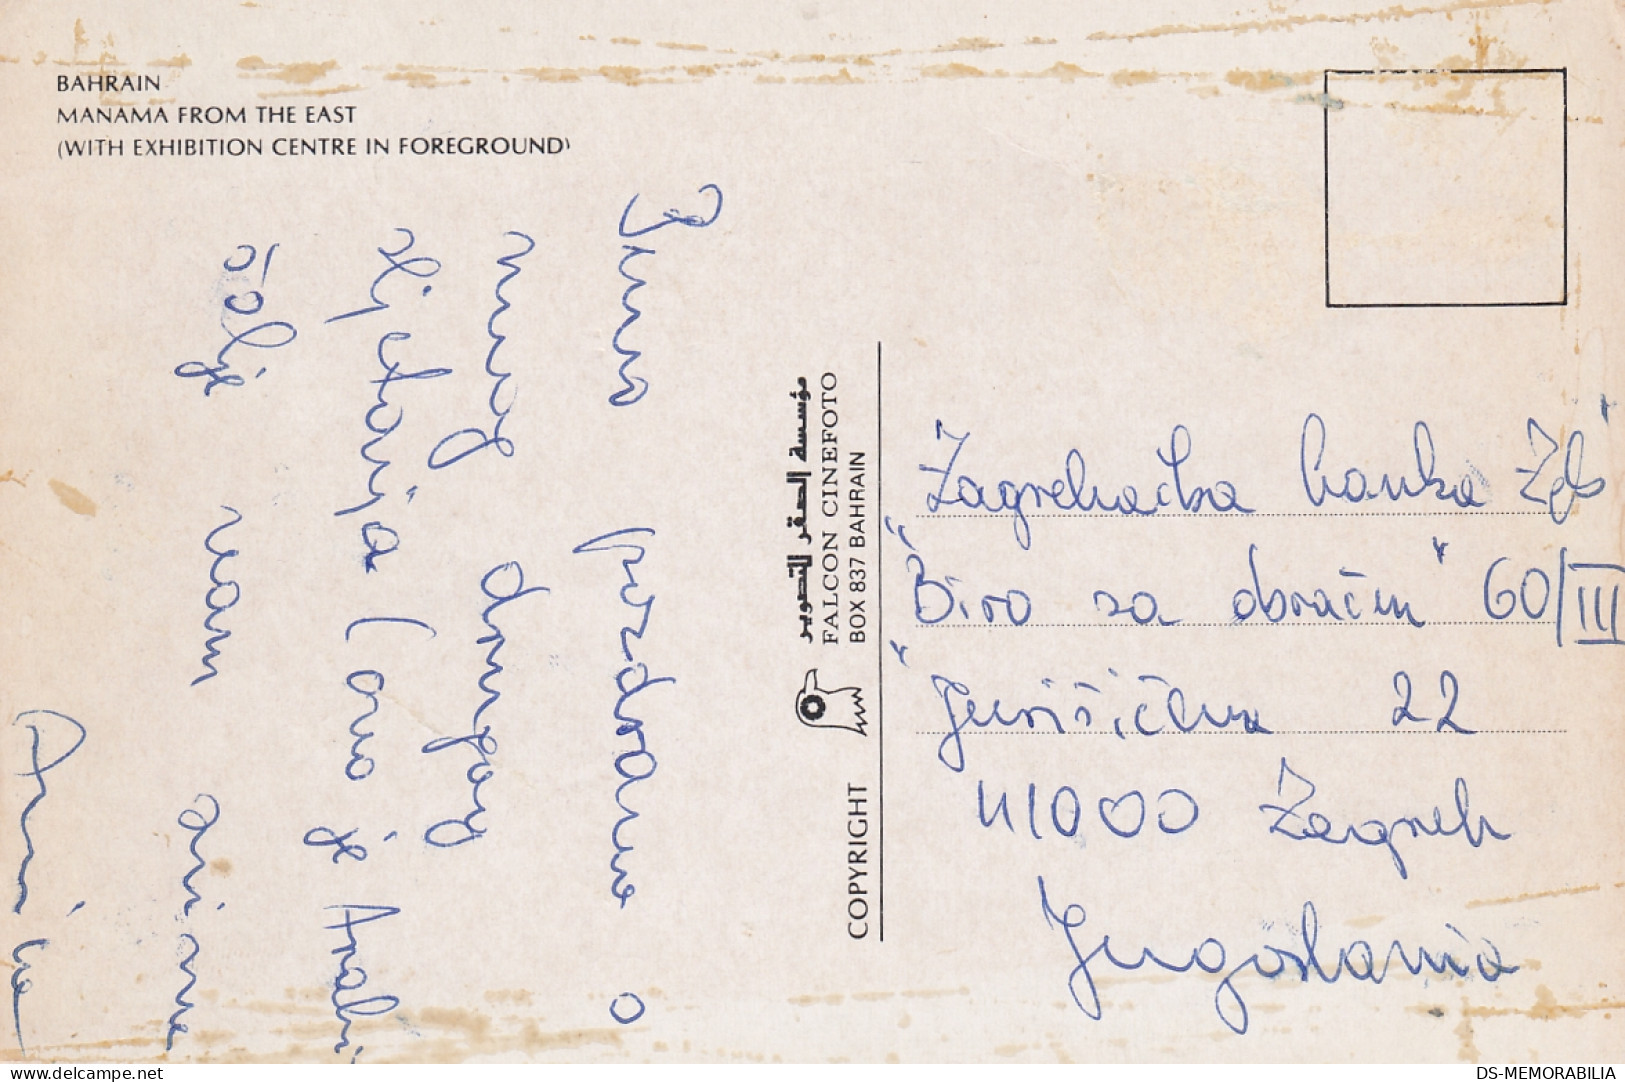 BAHRAIN
MANAMA FROM THE EAST
(WITH EXHIBITION CENTRE IN FOREGROUND)
Puno pozdrava o
mnog drugog
svjetanja (ovo je Arabi
šalje vam
مؤسسة الصقر للتصوير
FALCON CINEFOTO
BOX 837 BAHRAIN
COPYRIGHT
Zagrebačka banka Zgb
"Biro za obračun" 60/III
Jurišićeva 22
41000 Zagreb
Jugoslavia
www.delcampe.net
DS-MEMORABILIA